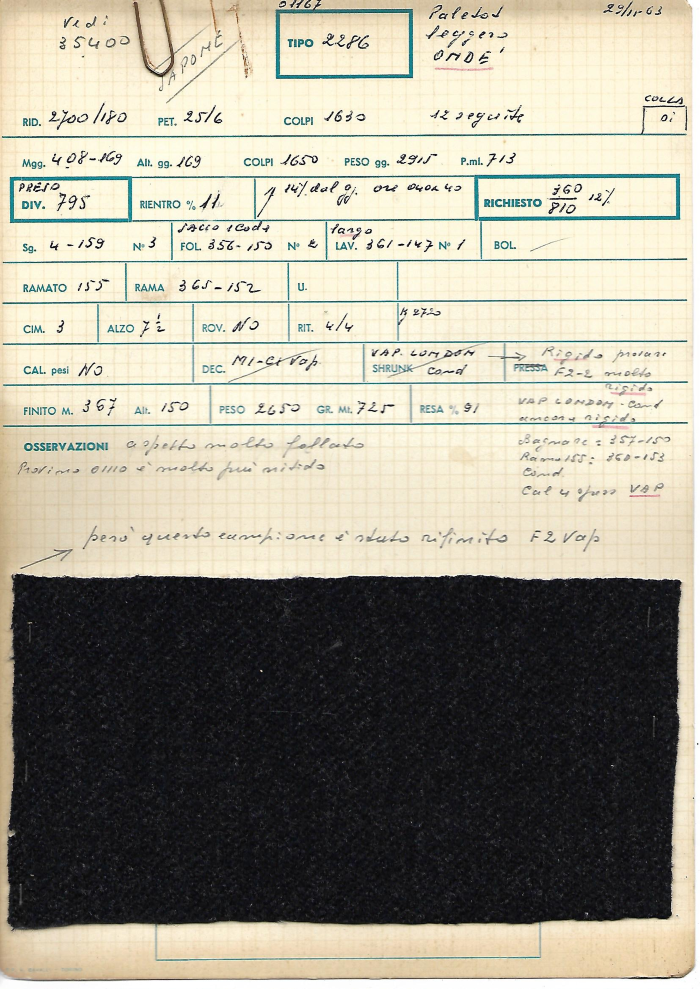 01167
29/11-63
Vedi
35400
TIPO 2286
Paletot
leggero
ONDÉ
RID. 2700/180 PET. 25/6 COLPI 1630 12 seguite
COLLA
Di
Mgg. 408-169 Alt. gg. 169 COLPI 1650 PESO gg. 2915 P.ml. 713
PRESO
DIV. 795 RIENTRO % 11 14% dal gg. ore RICHIESTO 360/810 12%
SACCO 1 Coda largo
Sg. 4-159 N° 3 FOL. 356-150 N° 2 LAV. 361-147 N° 1 BOL.
RAMATO 155 RAMA 365-152 U.
2720
CIM. 3 ALZO 7 1/2 ROV. NO RIT. 4/4
VAP. LONDON → Rigido provare
CAL. pesi NO DEC. MI-CI Vap SHRUNK Cond PRESSA F2-2 molto
rigido
FINITO M. 367 Alt. 150 PESO 2650 GR. Mt. 725 RESA % 91
VAP LONDON-Cond
ancora rigido
OSSERVAZIONI aspetto molto follato
Provino 0110 è molto più nitido
Bagnare: 357-150
Ramo 155: 360-153
Cond.
Cal 4 VAP
però questo campione è stato rifinito F2 Vap